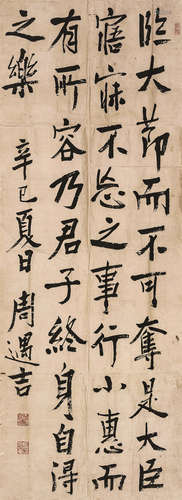 臨大節而不可奪是大臣
寤寐不忘之事行小惠而
有所容乃君子終身自得
之樂
辛巳夏日周遇吉